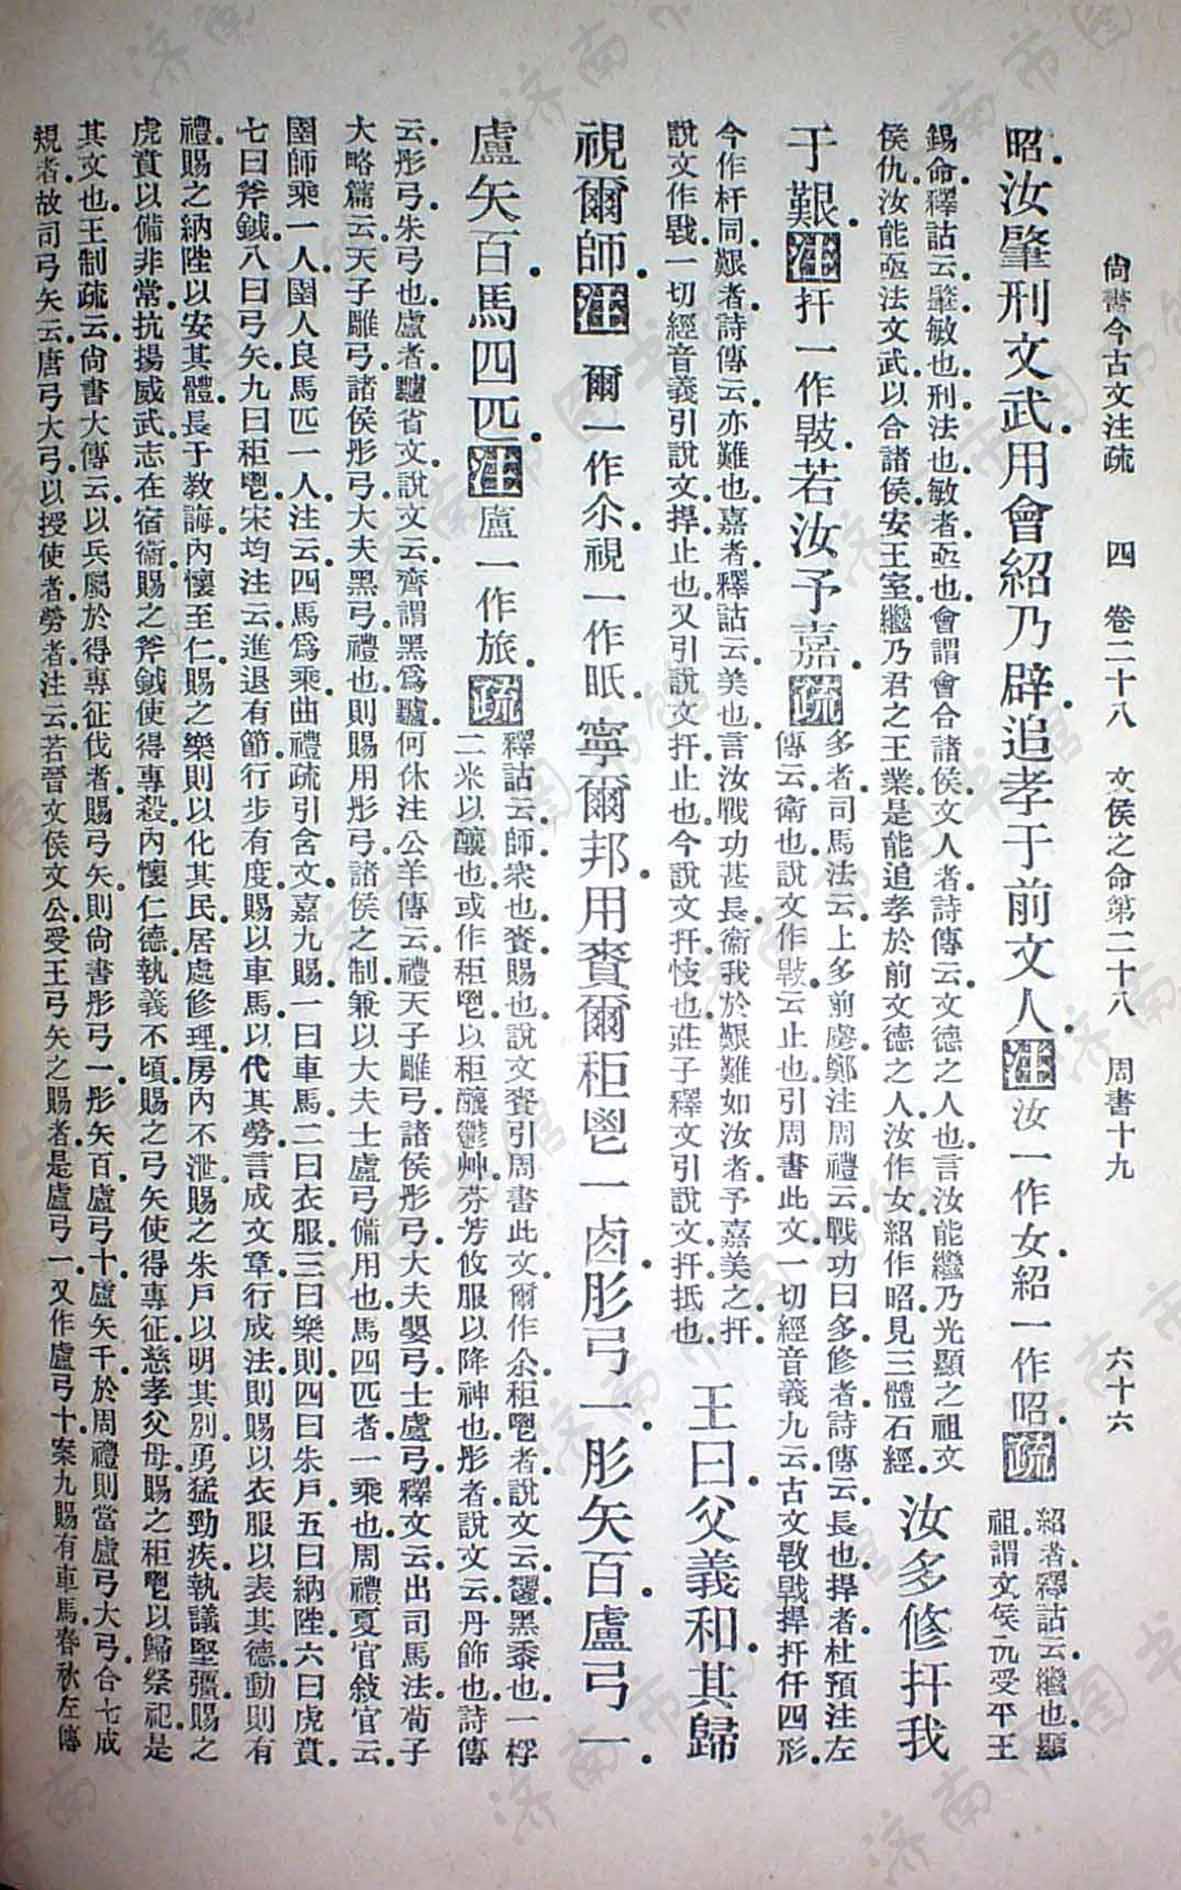 尙書今古文注疏　四　卷二十八　文侯之命第二十八　周書十九　六十六
昭．汝肇刑文武．用會紹乃辟．追孝于前文人．注汝一作女．紹一作昭．疏紹者．釋詁云．繼也．顯
祖．謂文侯仇受平王
錫命．釋詁云．肇．敏也．刑．法也．敏者．亟也．會謂會合諸侯．文人者．詩傳云．文德之人也．言汝能繼乃光顯之祖文
侯仇．汝能亟法文武．以合諸侯．安王室．繼乃君之王業．是能追孝於前文德之人．汝作女．紹作昭．見三體石經．
汝多修扞我
于艱．注扞一作㪋．若汝予嘉．疏多者．司馬法云．上多前虜．鄭注周禮云．戰功曰多．修者．詩傳云．長也．捍者．杜預注左
傳云．衛也．說文作㪋．云．止也．引周書此文．一切經音義九云．古文㪋．戰．捍．扞．仟四形．
今作杆同．艱者．詩傳云．亦難也．嘉者．釋詁云．美也．言汝戰功甚長．衞我於艱難．如汝者．予嘉美之．扞．
說文作戰．一切經音義引說文．捍．止也．又引說文．扞．止也．今說文．扞．忮也．莊子釋文引說文．扞．抵也．
王曰．父義和．其歸
視爾師．注爾一作尒．視一作眂．寧爾邦．用賚爾秬鬯一卣．彤弓一．彤矢百．盧弓一．
盧矢百．馬四匹．注盧一作旅．疏釋詁云．師．衆也．賚．賜也．說文賚引周書此文．爾作尒．秬鬯者．說文云．䵫．黑黍也．一稃
二米以釀也．或作秬．鬯．以秬釀鬱艸．芬芳攸服以降神也．彤者．說文云．丹飾也．詩傳
云．彤弓．朱弓也．盧者．黸省文．說文云．齊謂黑爲黸．何休注公羊傳云．禮．天子雕弓．諸侯彤弓．大夫嬰弓．士盧弓．釋文云．出司馬法．荀子
大略篇云．天子雕弓．諸侯彤弓．大夫黑弓．禮也．則賜用彤弓．諸侯之制．兼以大夫士盧弓備用也．馬四匹者．一乘也．周禮夏官敍官云．
圉師．乘一人．圉人．良馬匹一人．注云．四馬爲乘．曲禮疏引含文嘉九賜．一曰車馬．二曰衣服．三曰樂則．四曰朱戶．五曰納陛．六曰虎賁．
七曰斧鉞．八曰弓矢．九曰秬鬯．宋均注云．進退有節．行步有度．賜以車馬．以代其勞．言成文章．行成法則．賜以衣服．以表其德．動則有
禮．賜之納陛．以安其體．長于教誨．內懷至仁．賜之樂則．以化其民．居處修理．房內不泄．賜之朱戶．以明其別．勇猛勁疾．執議堅彊．賜之
虎賁．以備非常．抗揚威武．志在宿衞．賜之斧鉞．使得專殺．內懷仁德．執義不頃．賜之弓矢．使得專征．慈孝父母．賜之秬鬯．以歸祭祀．是
其文也．王制疏云．尙書大傳云．以兵屬於得專征伐者．賜弓矢．則尙書彤弓一．彤矢百．盧弓十．盧矢千．於周禮則當盧弓大弓．合七成
規者．故司弓矢云．唐弓大弓．以授使者勞者．注云．若晉文侯文公．受王弓矢之賜者．是盧弓一．又作盧弓十．案．九賜有車馬．春秋左傳